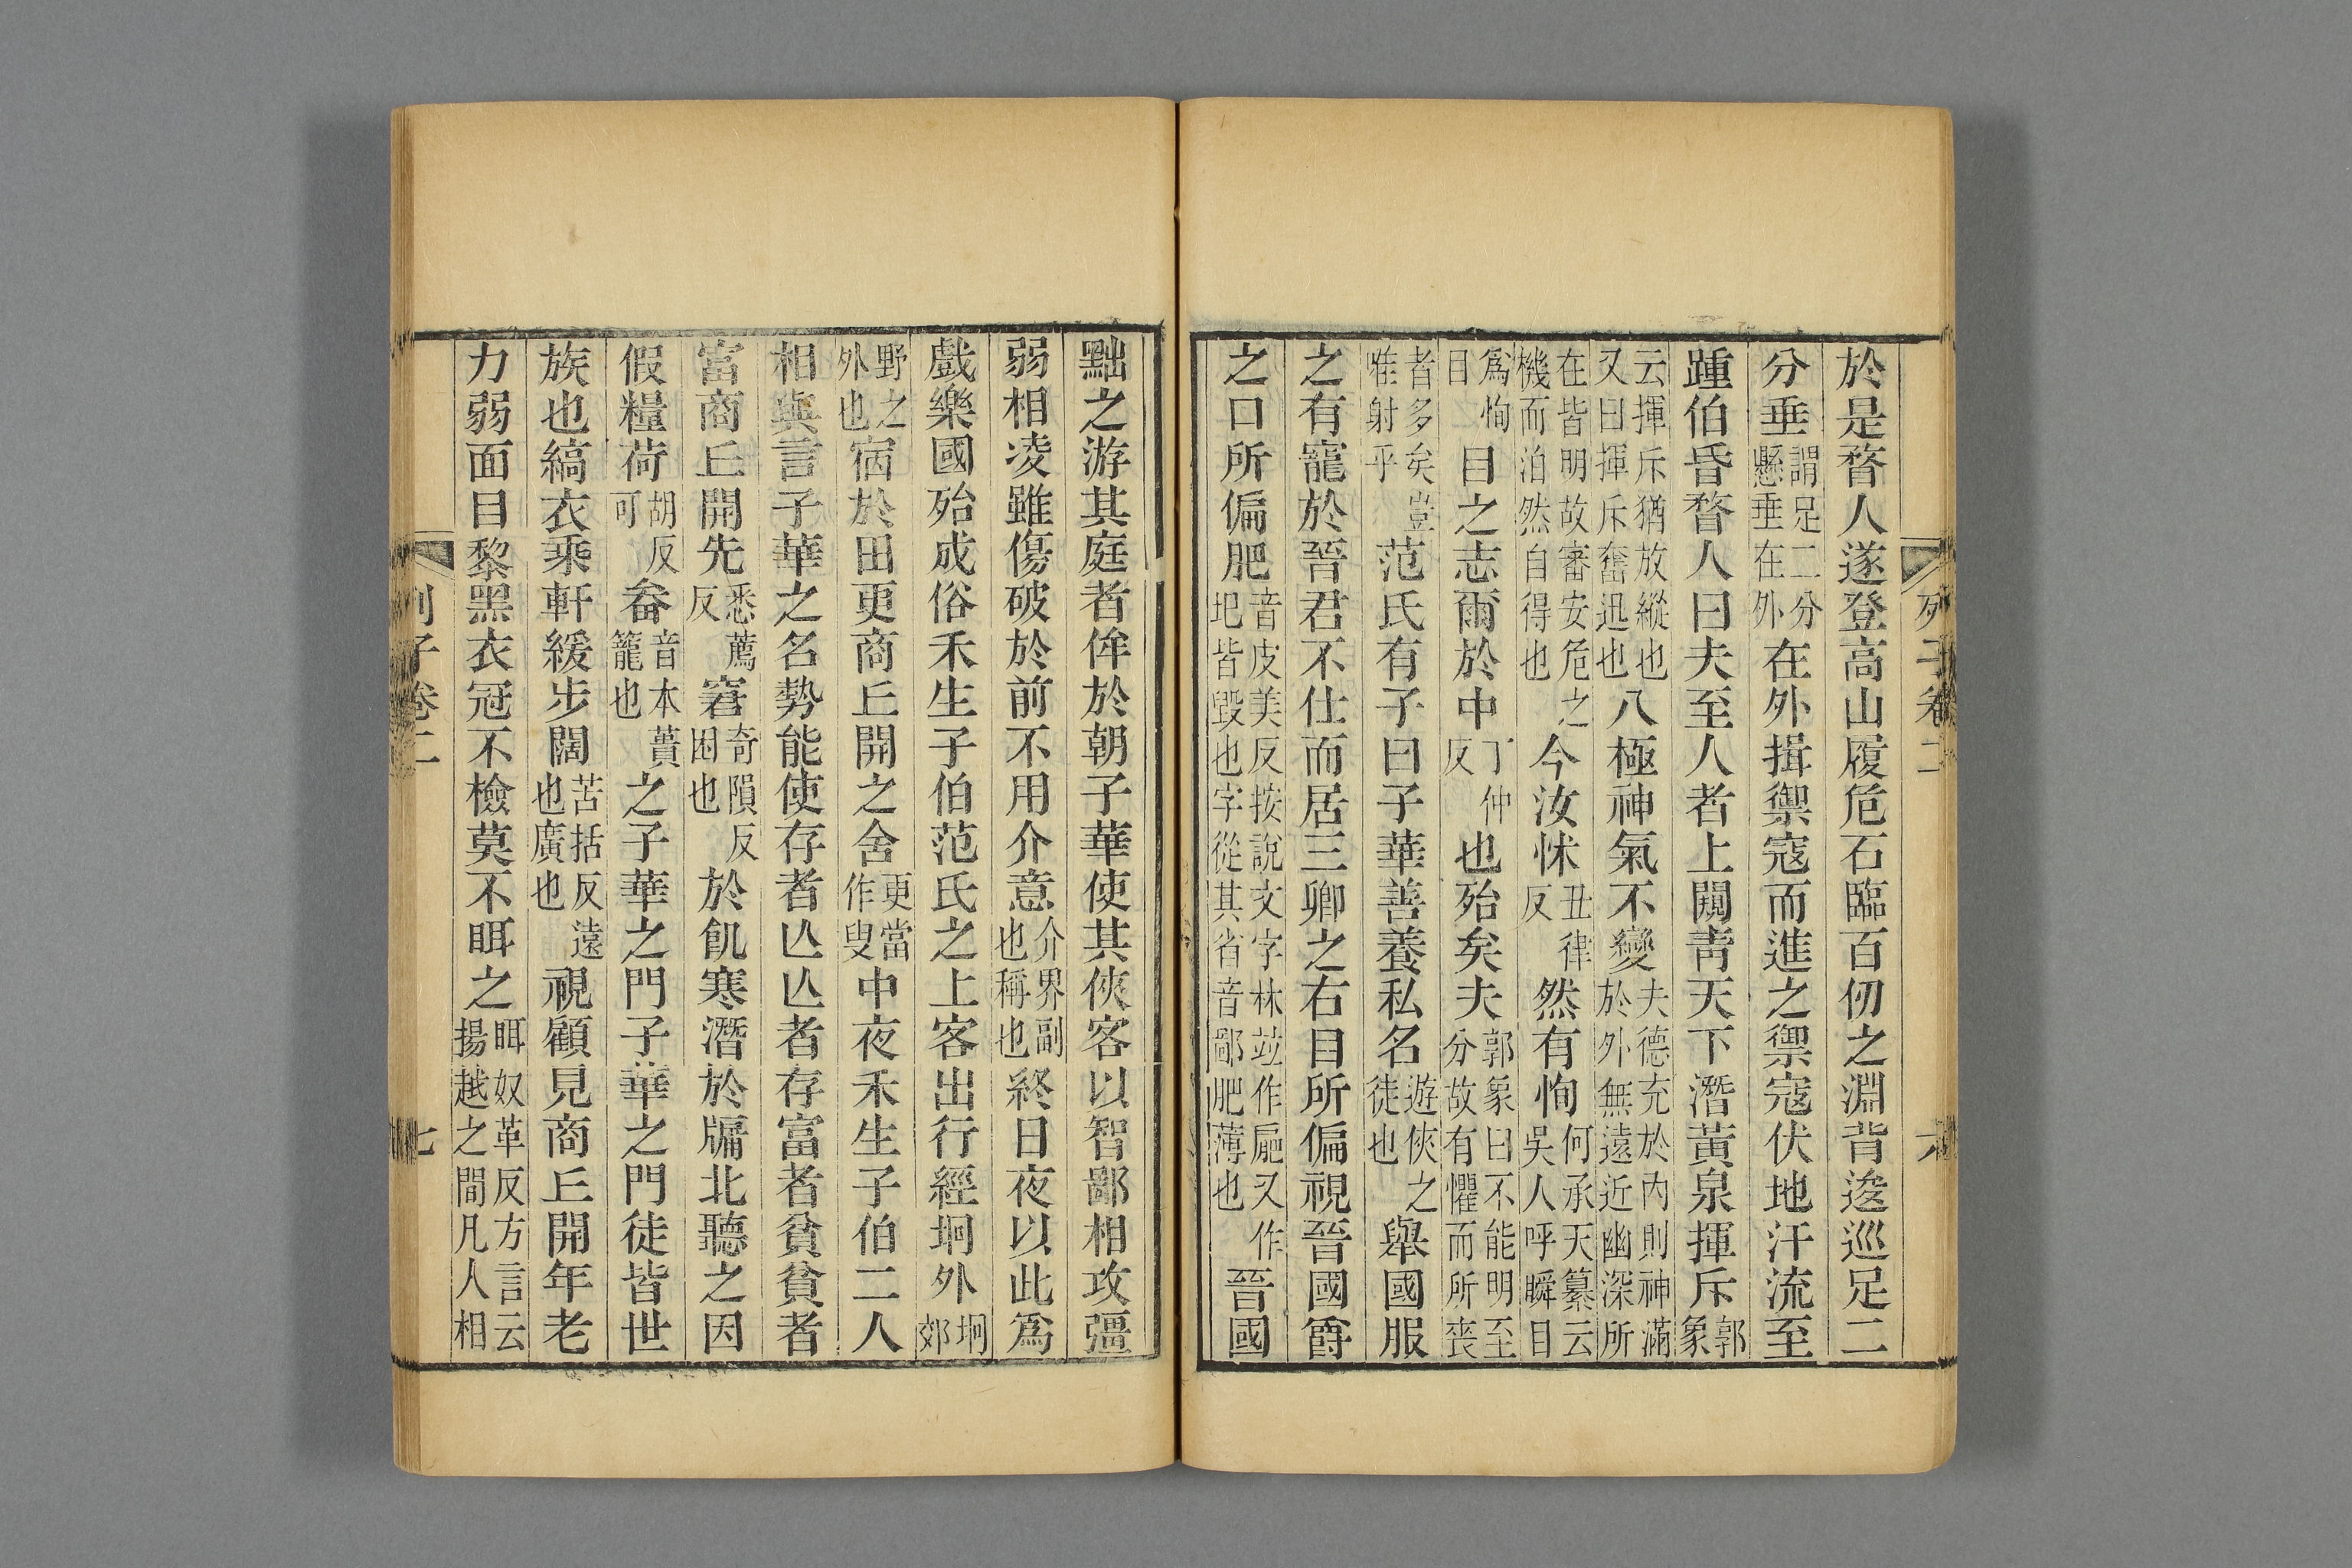 列子卷二　六
於是瞀人遂登高山履危石臨百仞之淵背逡巡足二
分垂謂足二分懸垂在外在外揖禦寇而進之禦寇伏地汗流至
踵伯昏瞀人曰夫至人者上闚靑天下潛黃泉揮斥郭象
云揮斥猶放縱也又曰揮斥奮迅也八極神氣不變夫德充於內則神滿於外無遠近幽深所
在皆明故審安危之機而泊然自得也今汝怵丑律反然有恂何承天纂云吳人呼瞬目
爲恂目目之志爾於中丁仲反也殆矣夫郭象曰不能明至分故有懼而所喪
者多矣豈唯射乎范氏有子曰子華善養私名遊俠之徒也舉國服
之有寵於晉君不仕而居三卿之右目所偏視晉國爵
之口所偏肥音皮美反按說文字林竝作又作圯皆毀也字從其省音鄙肥薄也晉國
黜之游其庭者侔於朝子華使其俠客以智鄙相攻彊
弱相凌雖傷破於前不用介意介界副也稱也終日夜以此爲
戲樂國殆成俗禾生子伯范氏之上客出行經坰外坰郊
野之外也宿於田更商丘開之舍更當作叟中夜禾生子伯二人
相與言子華之名勢能使存者亾亾者存富者貧貧者
富商丘開先悉薦反窘奇隕反困也於飢寒潛於牖北聽之因
假糧荷胡可反畚音本蕢籠也之子華之門子華之門徒皆世
族也縞衣乘軒緩步闊苦括反遠也廣也視顧見商丘開年老
力弱面目黎黑衣冠不檢莫不眲之眲奴革反方言云揚越之間凡人相
列子卷二　七